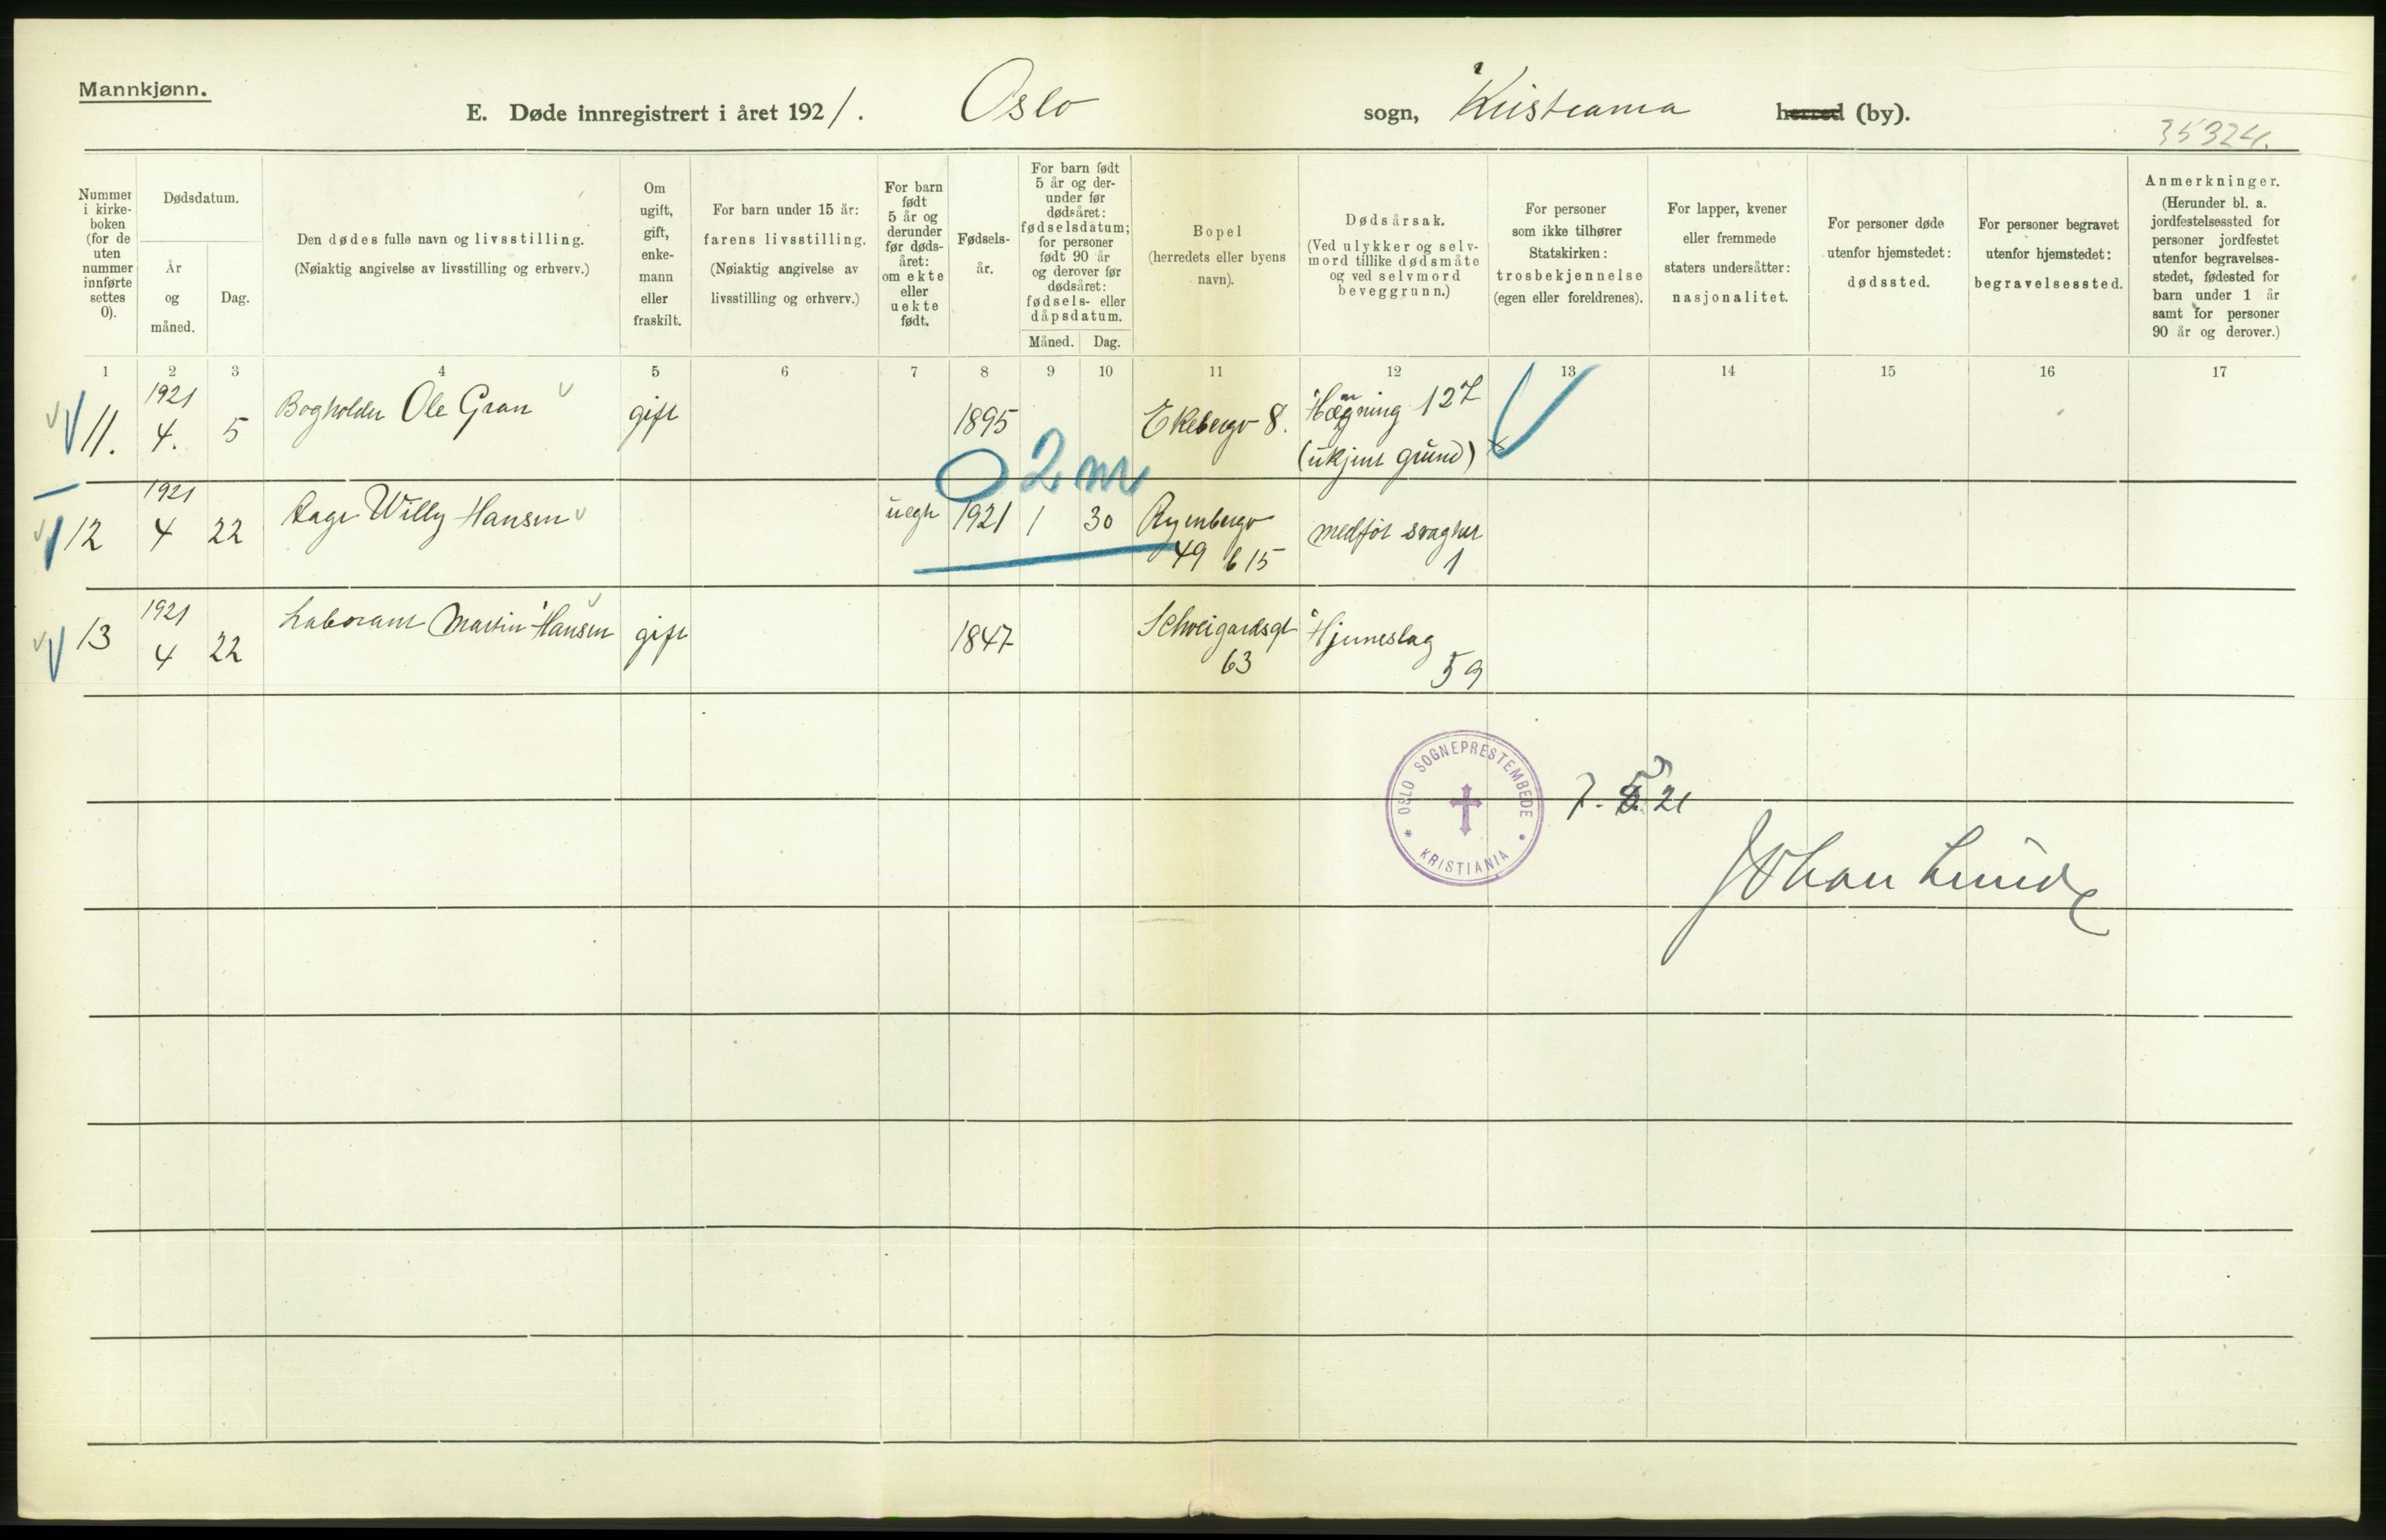 Mannkjønn.
E. Døde innregistrert i året 1921. Oslo sogn, Kristiania herred (by).
35324.
Nummer i kirkeboken (for de uten nummer innførte settes 0).
Dødsdatum.
År og måned.
Dag.
Den dødes fulle navn og livsstilling.
(Nøiaktig angivelse av livsstilling og erhverv.)
Om ugift, gift, enkemann eller fraskilt.
For barn under 15 år: farens livsstilling.
(Nøiaktig angivelse av livsstilling og erhverv.)
For barn født 5 år og derunder før dødsåret: om ekte eller uekte født.
Fødselsår.
For barn født 5 år og derunder før dødsåret: fødselsdatum; for personer født 90 år og derover før dødsåret: fødsels- eller dåpsdatum.
Måned. Dag.
Bopel
(herredets eller byens navn).
Dødsårsak.
(Ved ulykker og selvmord tillike dødsmåte og ved selvmord beveggrunn.)
For personer som ikke tilhører Statskirken: trosbekjennelse (egen eller foreldrenes).
For lapper, kvener eller fremmede staters undersåtter: nasjonalitet.
For personer døde utenfor hjemstedet: dødssted.
For personer begravet utenfor hjemstedet: begravelsessted.
Anmerkninger.
(Herunder bl. a. jordfestelsessted for personer jordfestet utenfor begravelsesstedet, fødested for barn under 1 år samt for personer 90 år og derover.)
1 2 3 4 5 6 7 8 9 10 11 12 13 14 15 16 17
11. 1921 4. 5 Bogholder Ole Gran gift 1895 Ekebergv 8. Hængning 127
(ukjent grund)
0 2 m
12 1921 4 22 Aage Willy Hansen uegte 1921 1 30 Ryenbergv
49 b 15 medfør svaghet
1
13 1921 4 22 Laborant Martin Hansen gift 1847 Schweigaardsgt
63 Hjerneslag
59
OSLO SOGNEPRESTEMBEDE
KRISTIANIA
7. 5. 21
Johan Lunde